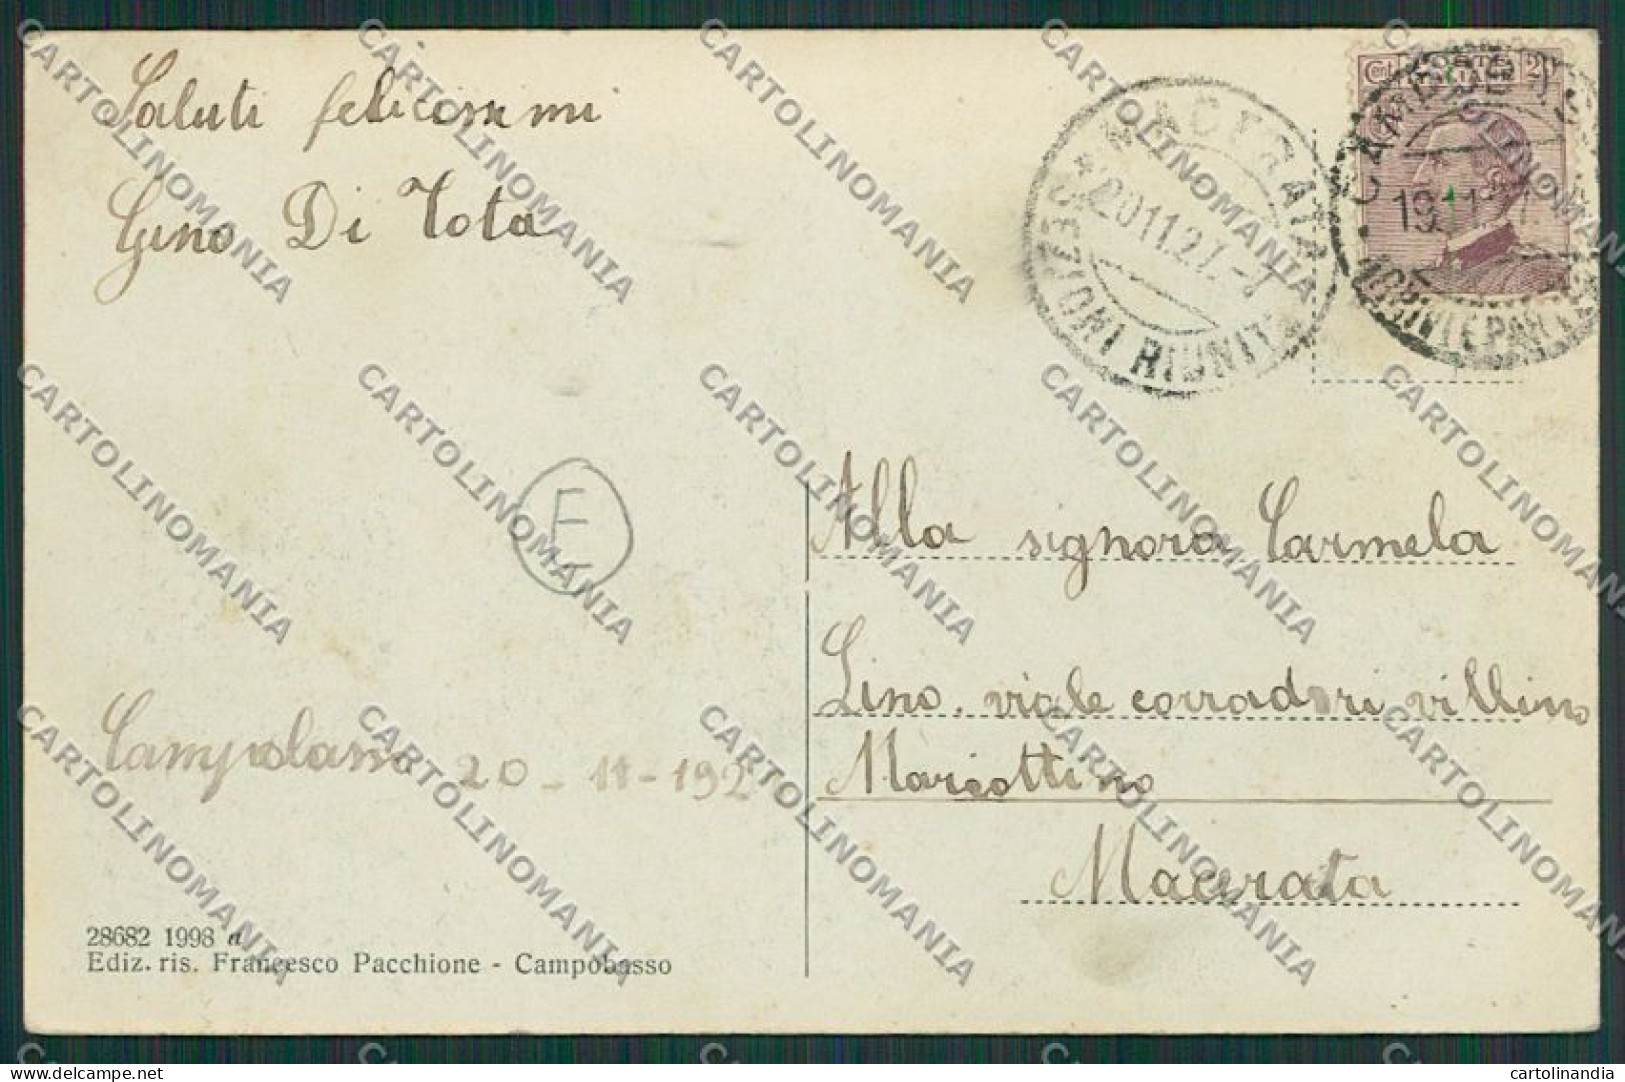 Saluti felicissimi
Gino Di Tota
Campobasso 20-11-192
28682 1998 a
Ediz. ris. Francesco Pacchione - Campobasso
E
MACERATA
20.11.27.-7
SEZIONI RIUNITE
Cent. POSTE ITALIANE 2
CAMPOBASSO
19.11.
ARRIVI E PARTENZE
Alla signora Carmela
Lino. viale corradori villino
Marcottino
Macerata
CARTOLINOMANIA
delcampe.net
cartolinandia